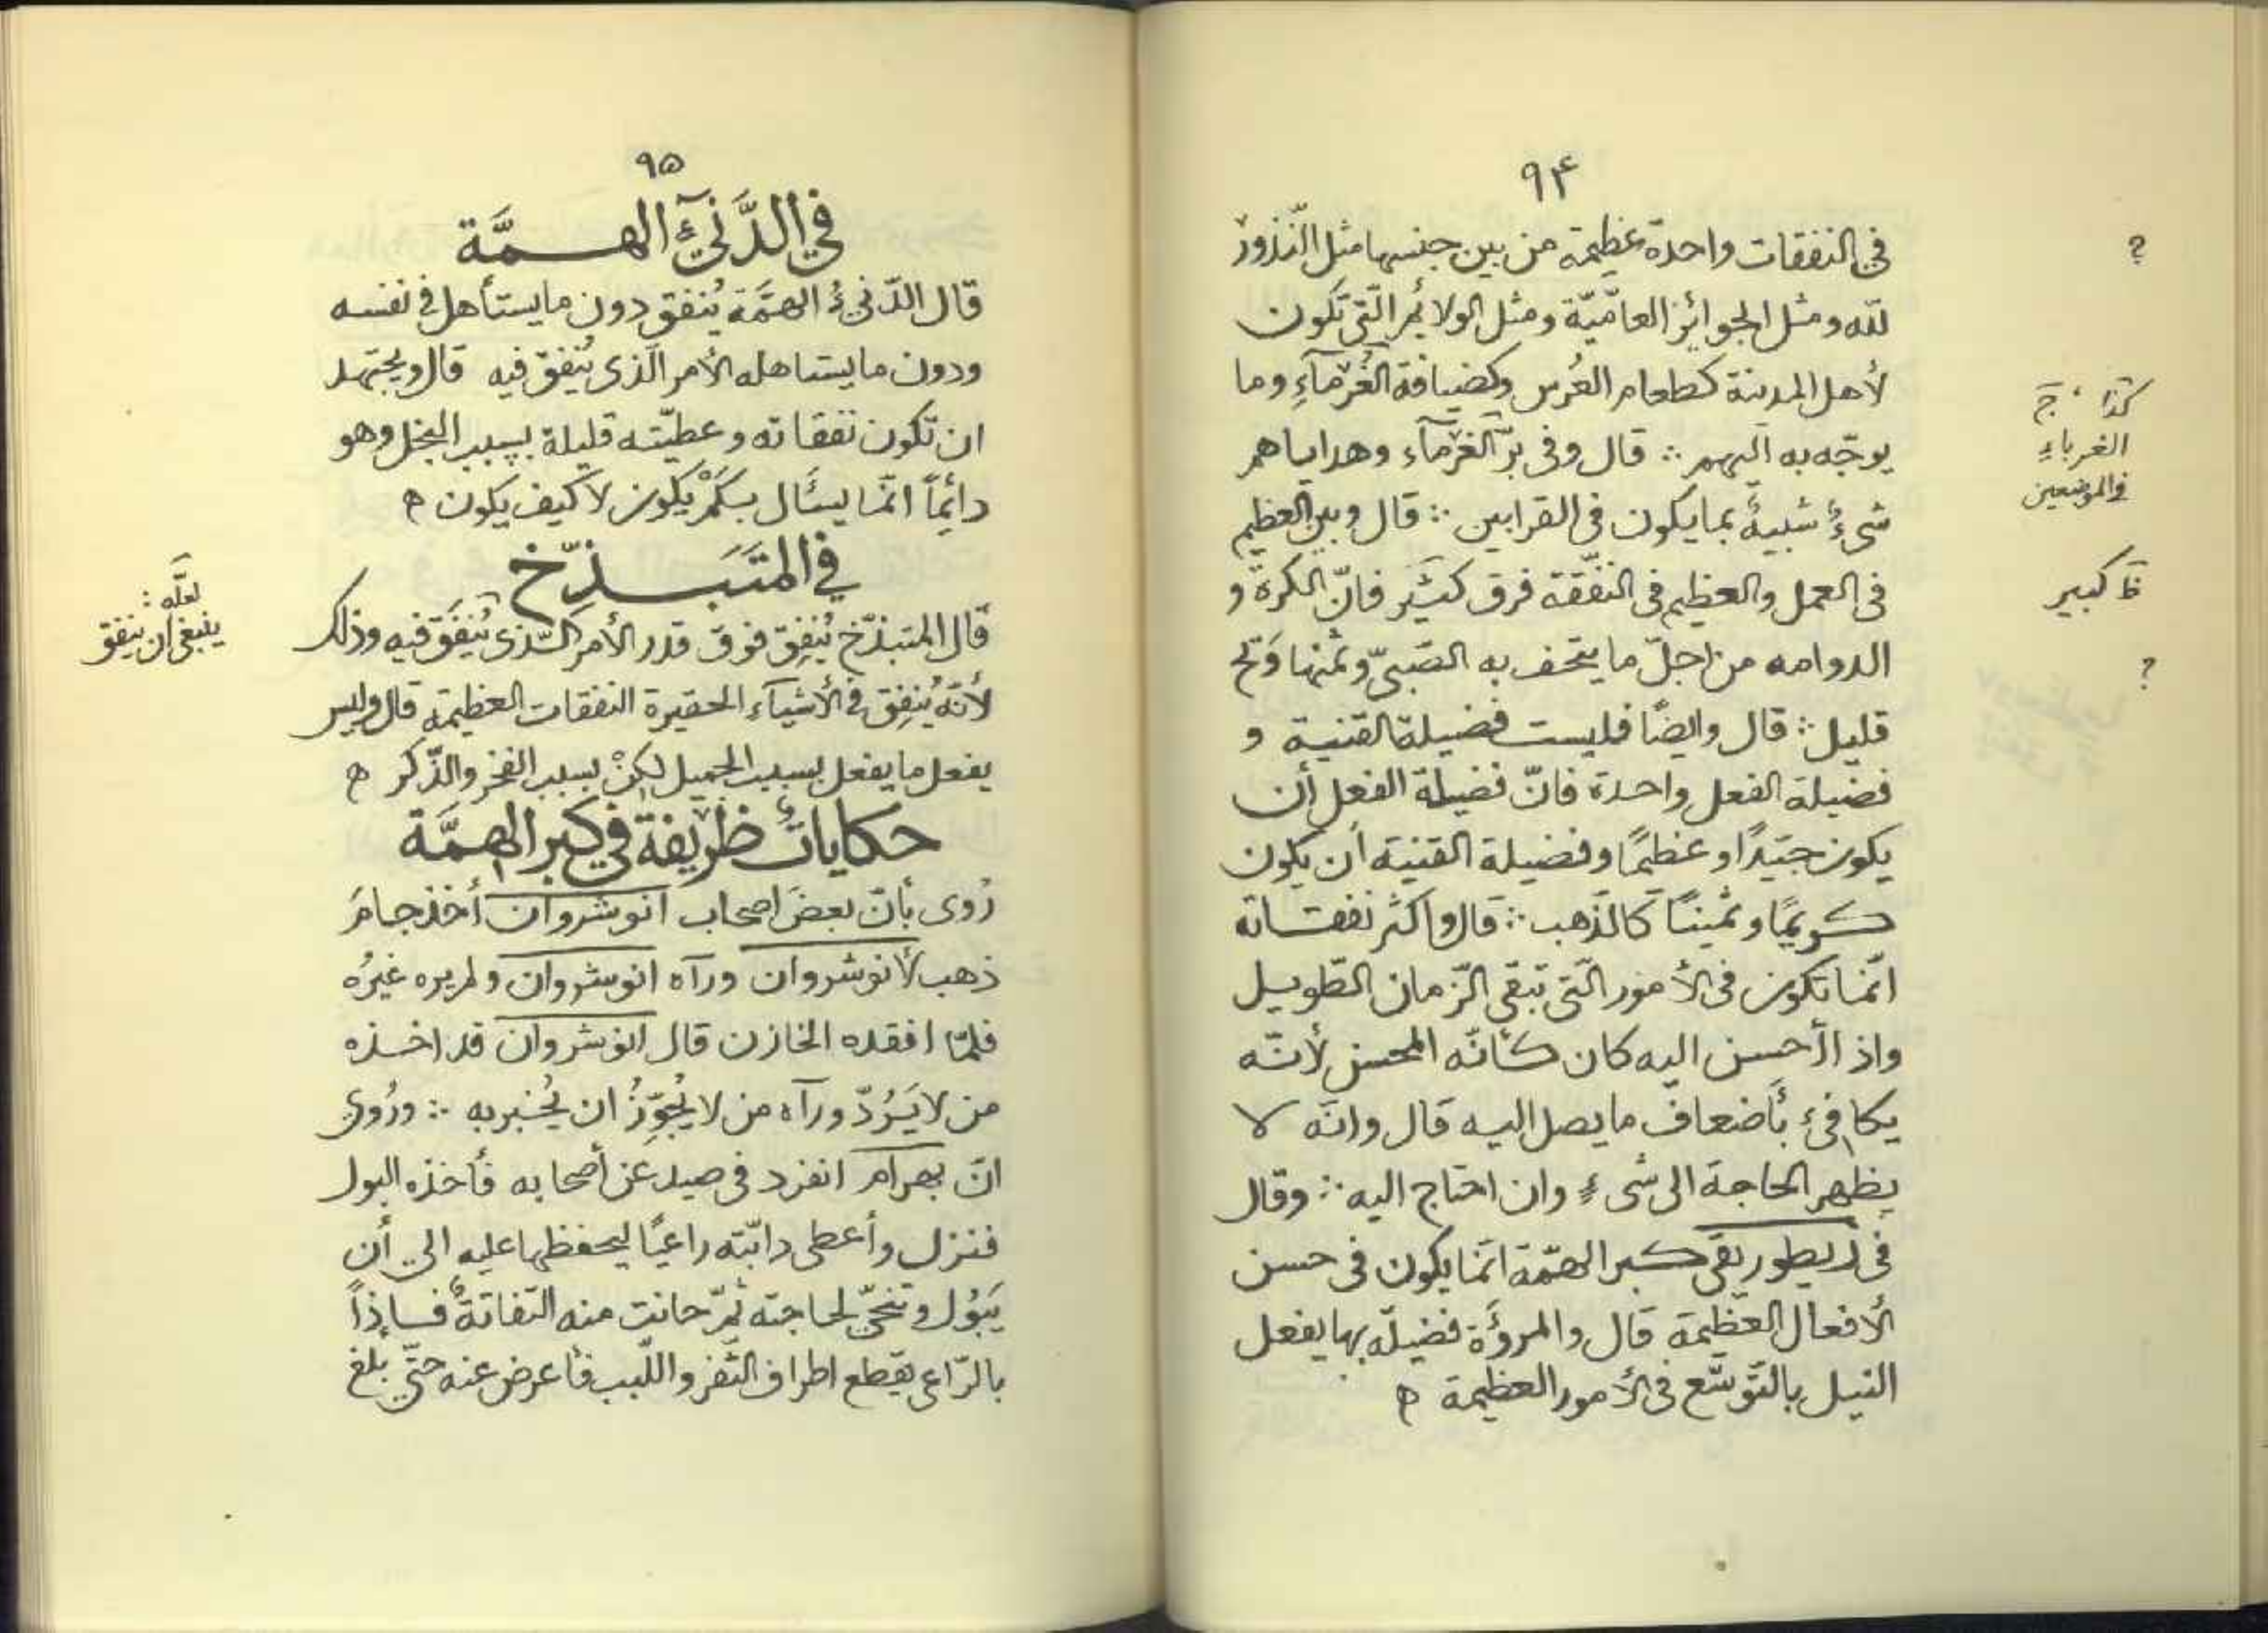 ٩۴
في النفقات واحدة عظيمة من بين جنسها مثل النّذور
للّه ومثل الجوائز العامّيّة ومثل الولائم الّتى تكون
لأهل المدينة كطعام العُرس وكضيافة الغُرمآءِ وما
يوجّه به اليهم ∴ قال وفى برّ الغرمآء وهداياهم
شىءٌ شبيهٌ بما يكون فى القرابين ∴ قال وبين العظيم
فى العمل والعظيم فى النفقة فرق كثير فانّ الكرة و
الدوامه من اجلّ ما يتحف به الصّبىّ وثمنها وَتح
قليل ∴ قال وايضًا فليست فضيلة القنية و
فضيلة الفعل واحدة فانّ فضيلة الفعل أن
يكون جيّدًا وعظيمًا وفضيلة القنية أن يكون
كريمًا وثمينًا كالذّهب ∴ قال واكثر نفقاته
انّما تكون فى الأمور الّتى تبقى الزّمان الطّويل
واذا أحسن اليه كان كأنّه المحسن لأنّه
يكافىء بأضعاف ما يصل اليه قال وانّه لا
يظهر الحاجة الى شىءٍ وان احتاج اليه ∴ وقال
فى أريطوريقى كبر الهمّة انّما يكون فى حسن
الأفعال العظيمة قال والمروأة فضيلة بها يفعل
النبيل بالتّوسّع فى الأمور العظيمة ه
؟
كذا ، ج
الغرباءِ
فى الموضعين
ظ كبير
؟
٩۵
في الدَّنىِّءِ الهمَّة
قال الدّنىءُ الهمَّة يُنفق دون ما يستأهل فى نفسه
ودون ما يستاهله الأمر الّذى يُنفق فيه قال ويجتهد
ان تكون نفقاته وعطيّته قليلة بسبب البخل وهو
دائمًا انّما يسئال بكَمْ يكون لا كيف يكون ه
في المتَبَذِّخ
قال المتبذّخ يُنفِق فوق قدر الأمر الّذى يُنفَق فيه وذلك
لأنّه يُنفِق فى الأشيآء الحقيرة النفقات العظيمة قال وليس
يفعل ما يفعل بسبب الجميل لكنْ بسبب الفخر والذّكر ه
حكاياتٌ ظريفة في كبر الهمَّة
رُوى بأنّ بعضَ اصحاب انوشروان أخذ جامَ
ذهب لأنوشروان ورآه انوشروان ولم يره غيرُه
فلمّا افقده الخازن قال انوشروان قد اخذه
من لا يَرُدّ ورآه من لا يُجوِّزُ ان يُخبر به ∴ ورُوى
انّ بهرام انفرد فى صيد عن أصحابه فأخذه البول
فنزل وأعطى دابّته راعيًا ليحفظها عليه الى أن
يَبُول وتنحّى لحاجته ثمّ حانت منه التفاتةٌ فإذًا
بالرّاعى يقطع اطراف الثفر واللّبب فأعرض عنه حتّى بلغ
لعلّه :
ينبغى ان ينفق